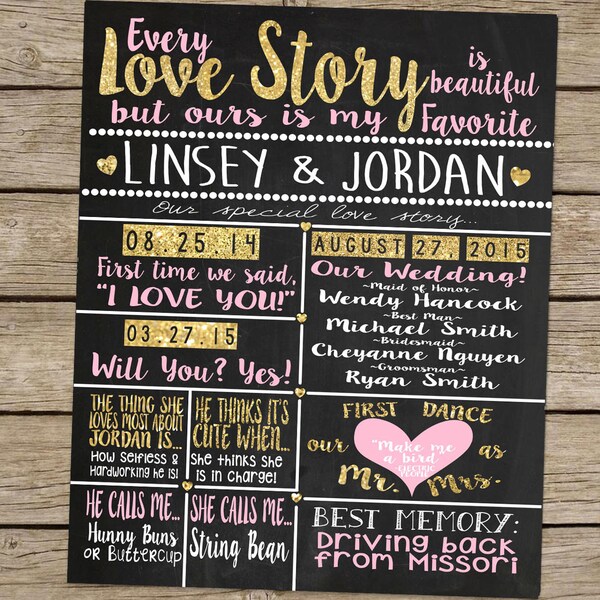 Every
Love Story
is
beautiful
but ours is my Favorite
LINSEY & JORDAN
Our special love story...
08.25.14
First time we said,
"I LOVE YOU!"
03.27.15
Will You? Yes!
THE THING SHE
LOVES MOST ABOUT
JORDAN IS...
HOW SELFLESS &
HARDWORKING HE IS!
HE THINKS IT'S
CUTE WHEN...
SHE THINKS SHE
IS IN CHARGE!
HE CALLS ME...
HUNNY BUNS
OR BUTTERCUP
SHE CALLS ME...
String Bean
AUGUST 27, 2015
Our Wedding!
~Maid of Honor~
Wendy Hancock
~Best Man~
Michael Smith
~Bridesmaid~
Cheyanne Nguyen
~Groomsman~
Ryan Smith
FIRST DANCE
our
"Make me
a bird"
~ELECTRIC
PEOPLE
as
Mr. Mrs.
BEST MEMORY:
Driving back
from Missori